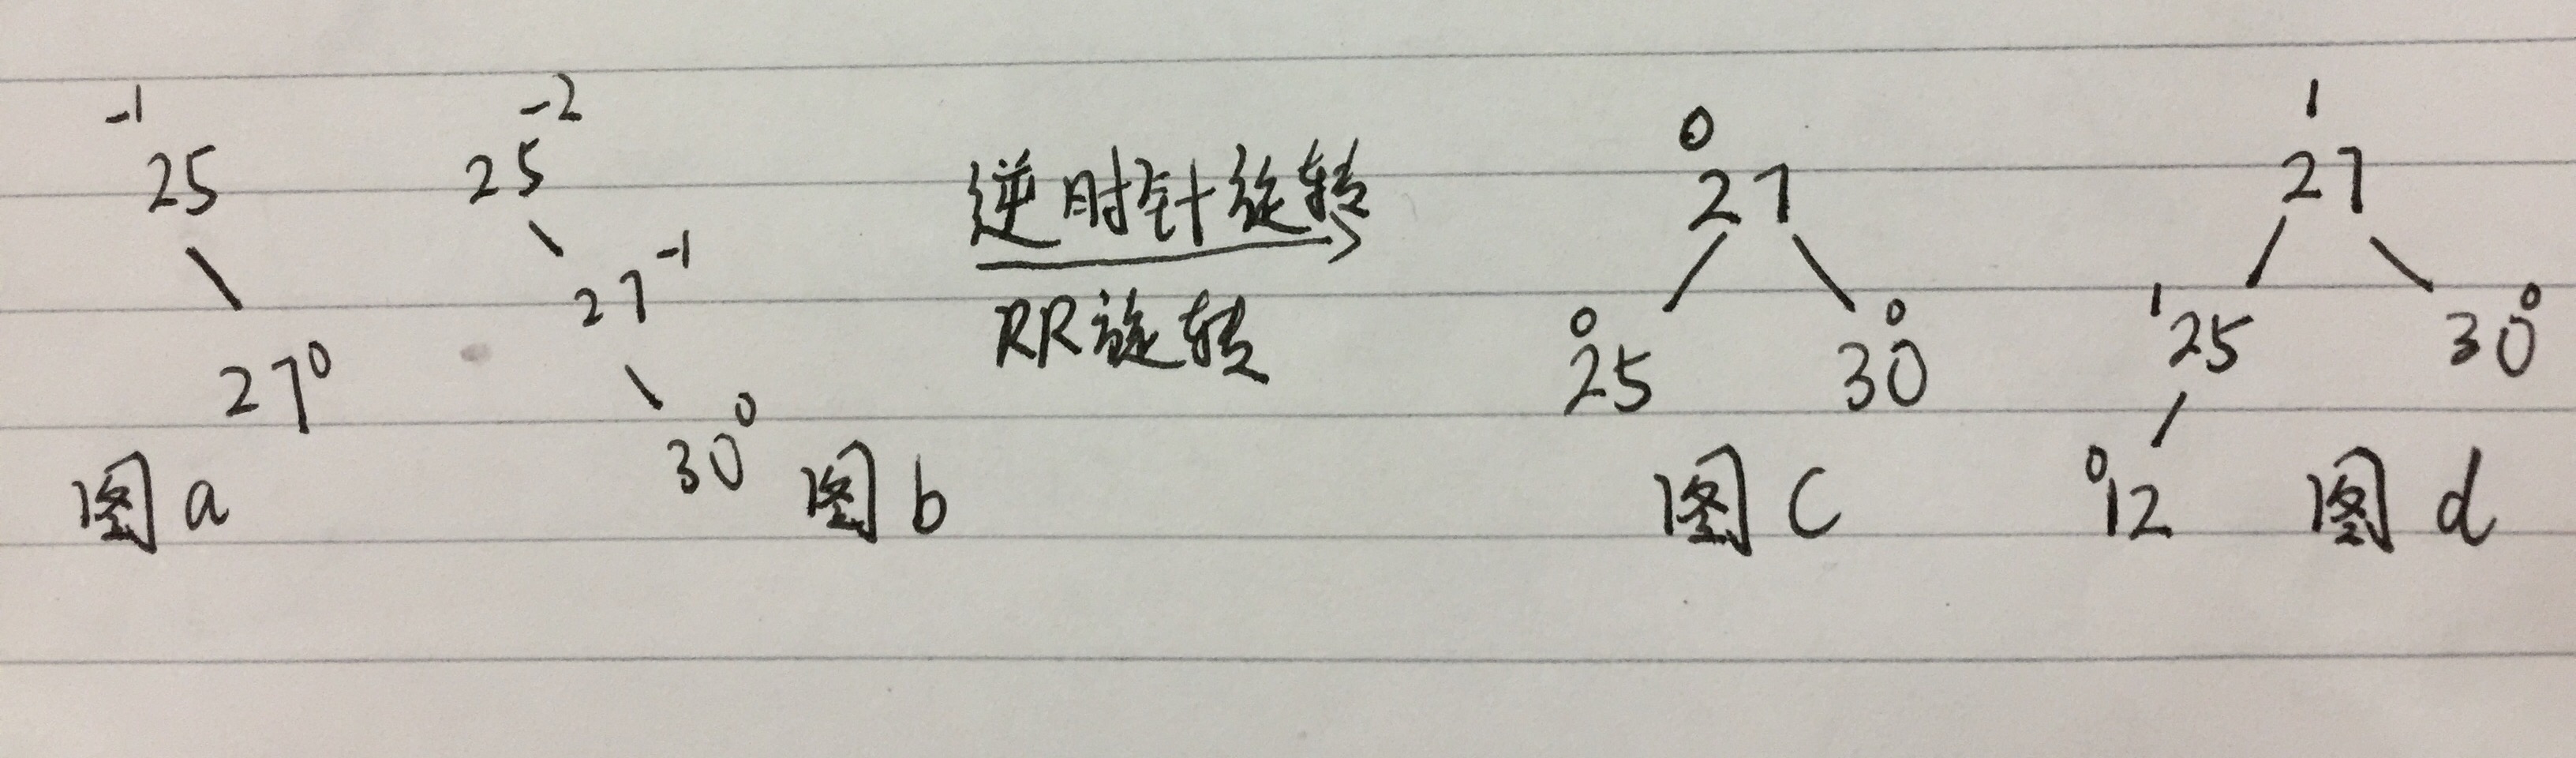 -1
25
27 0
图 a
-2
25
27 -1
30 0
图 b
逆时针旋转
RR旋转
0
27
0 0
25 30
图 c
1
27
1 25 30 0
0 12
图 d